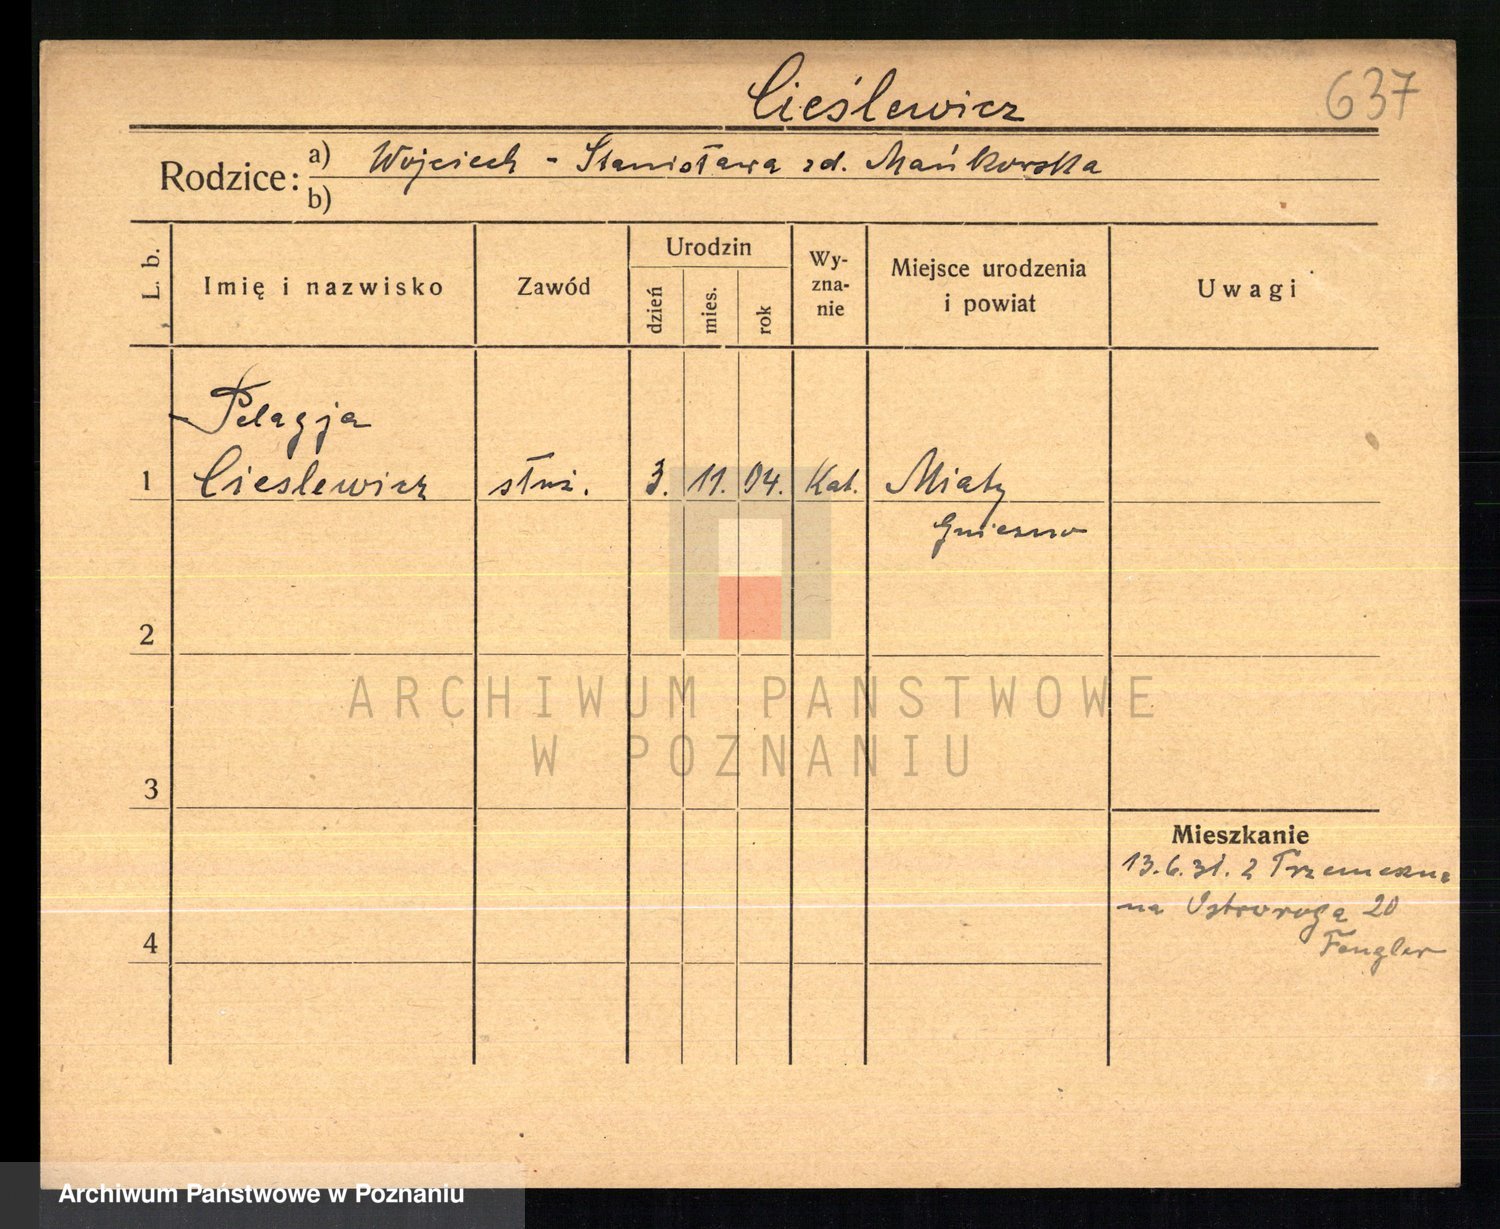 Cieślewicz
637
Rodzice:
a) Wojciech - Stanisława zd. Mańkowska
b)
L. b.
Imię i nazwisko
Zawód
Urodzin
dzień
mies.
rok
Wy-
zna-
nie
Miejsce urodzenia
i powiat
Uwagi
Pelagja
1 Cieslewicz służ. 3. 11. 04. Kat. Miaty
Gniezno
2
ARCHIWUM PAŃSTWOWE
W POZNANIU
3
Mieszkanie
13.6.31. z Trzemeszna
na Ostroroga 20
4
Fengler
Archiwum Państwowe w Poznaniu